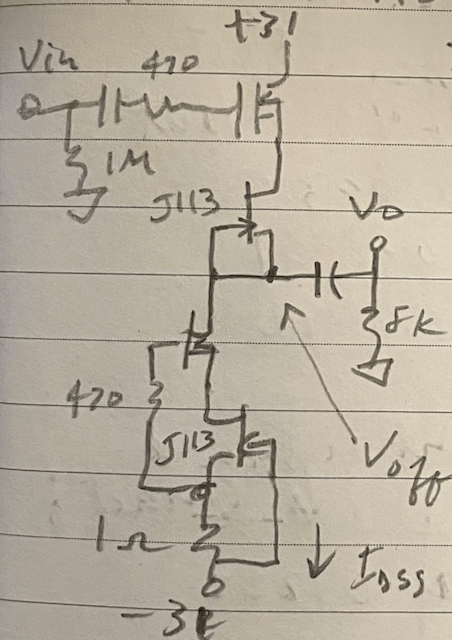 +31
Vin
470
1M
J113
Vo
8K
470
J113
Voff
1Ω
IDSS